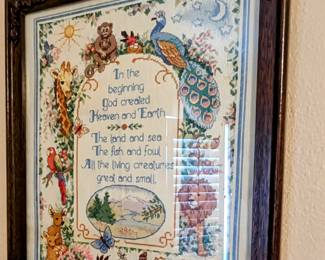 In the
beginning
God created
Heaven and Earth
The land and sea
The fish and fowl
All the living creatures
great and small.